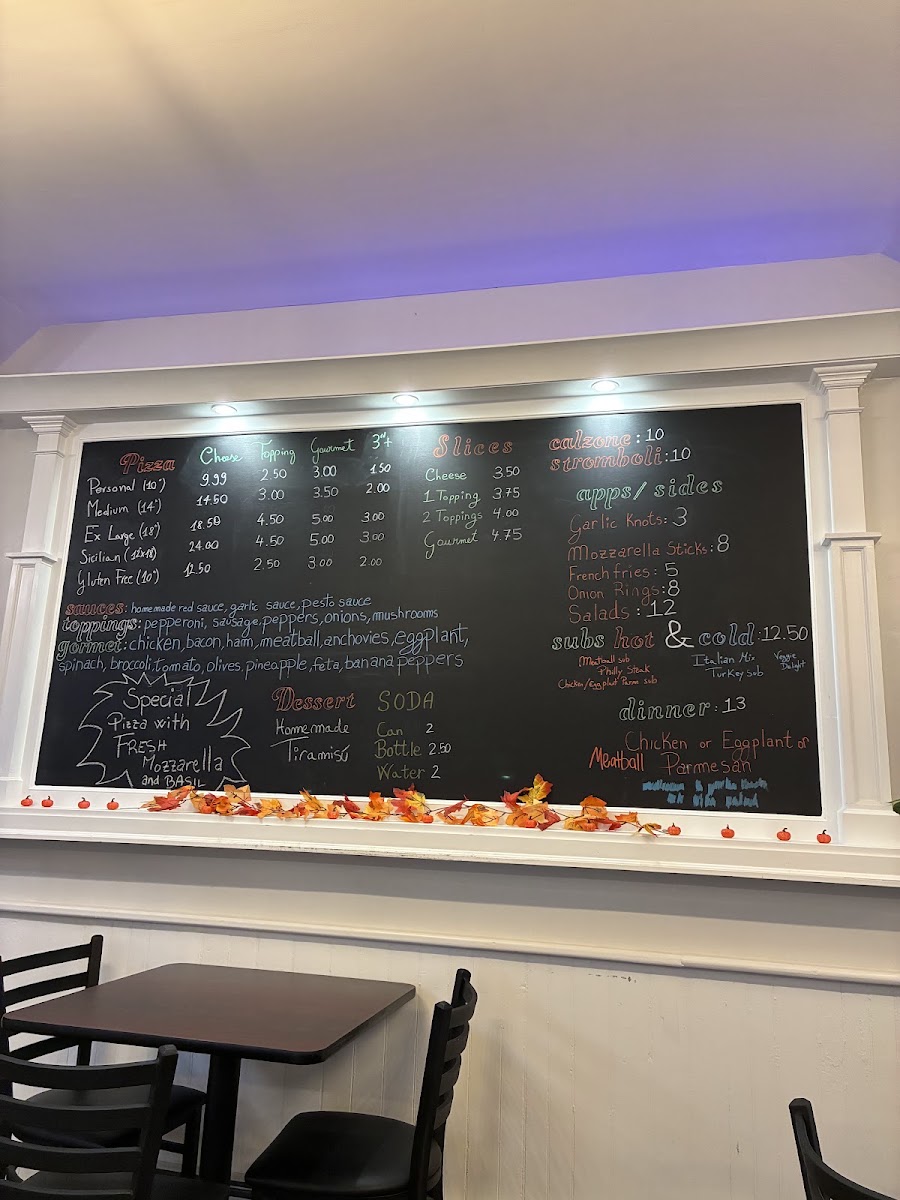 Pizza Cheese Topping Gourmet 3"+
Personal (10") 9.99 2.50 3.00 1.50
Medium (14") 14.50 3.00 3.50 2.00
Ex Large (18") 18.50 4.50 5.00 3.00
Sicilian (12x18) 24.00 4.50 5.00 3.00
Gluten Free (10") 12.50 2.50 3.00 2.00
sauces: homemade red sauce, garlic sauce, pesto sauce
toppings: pepperoni, sausage, peppers, onions, mushrooms
gormet: chicken, bacon, ham, meatball, anchovies, eggplant,
spinach, broccoli, tomato, olives, pineapple, feta, banana peppers
Special
Pizza with
FRESH
Mozzarella
and BASIL
Dessert
Homemade
Tiramisú
SODA
Can 2
Bottle 2.50
Water 2
Slices
Cheese 3.50
1 Topping 3.75
2 Toppings 4.00
Gourmet 4.75
calzone: 10
stromboli: 10
apps/sides
Garlic Knots: 3
Mozzarella Sticks: 8
French fries: 5
Onion Rings: 8
Salads: 12
subs hot & cold: 12.50
Meatball sub
Philly Steak
Chicken/Eggplant Parm sub
Italian Mix
Turkey Sub
Veggie
Delight
dinner: 13
Chicken or Eggplant or
Meatball Parmesan